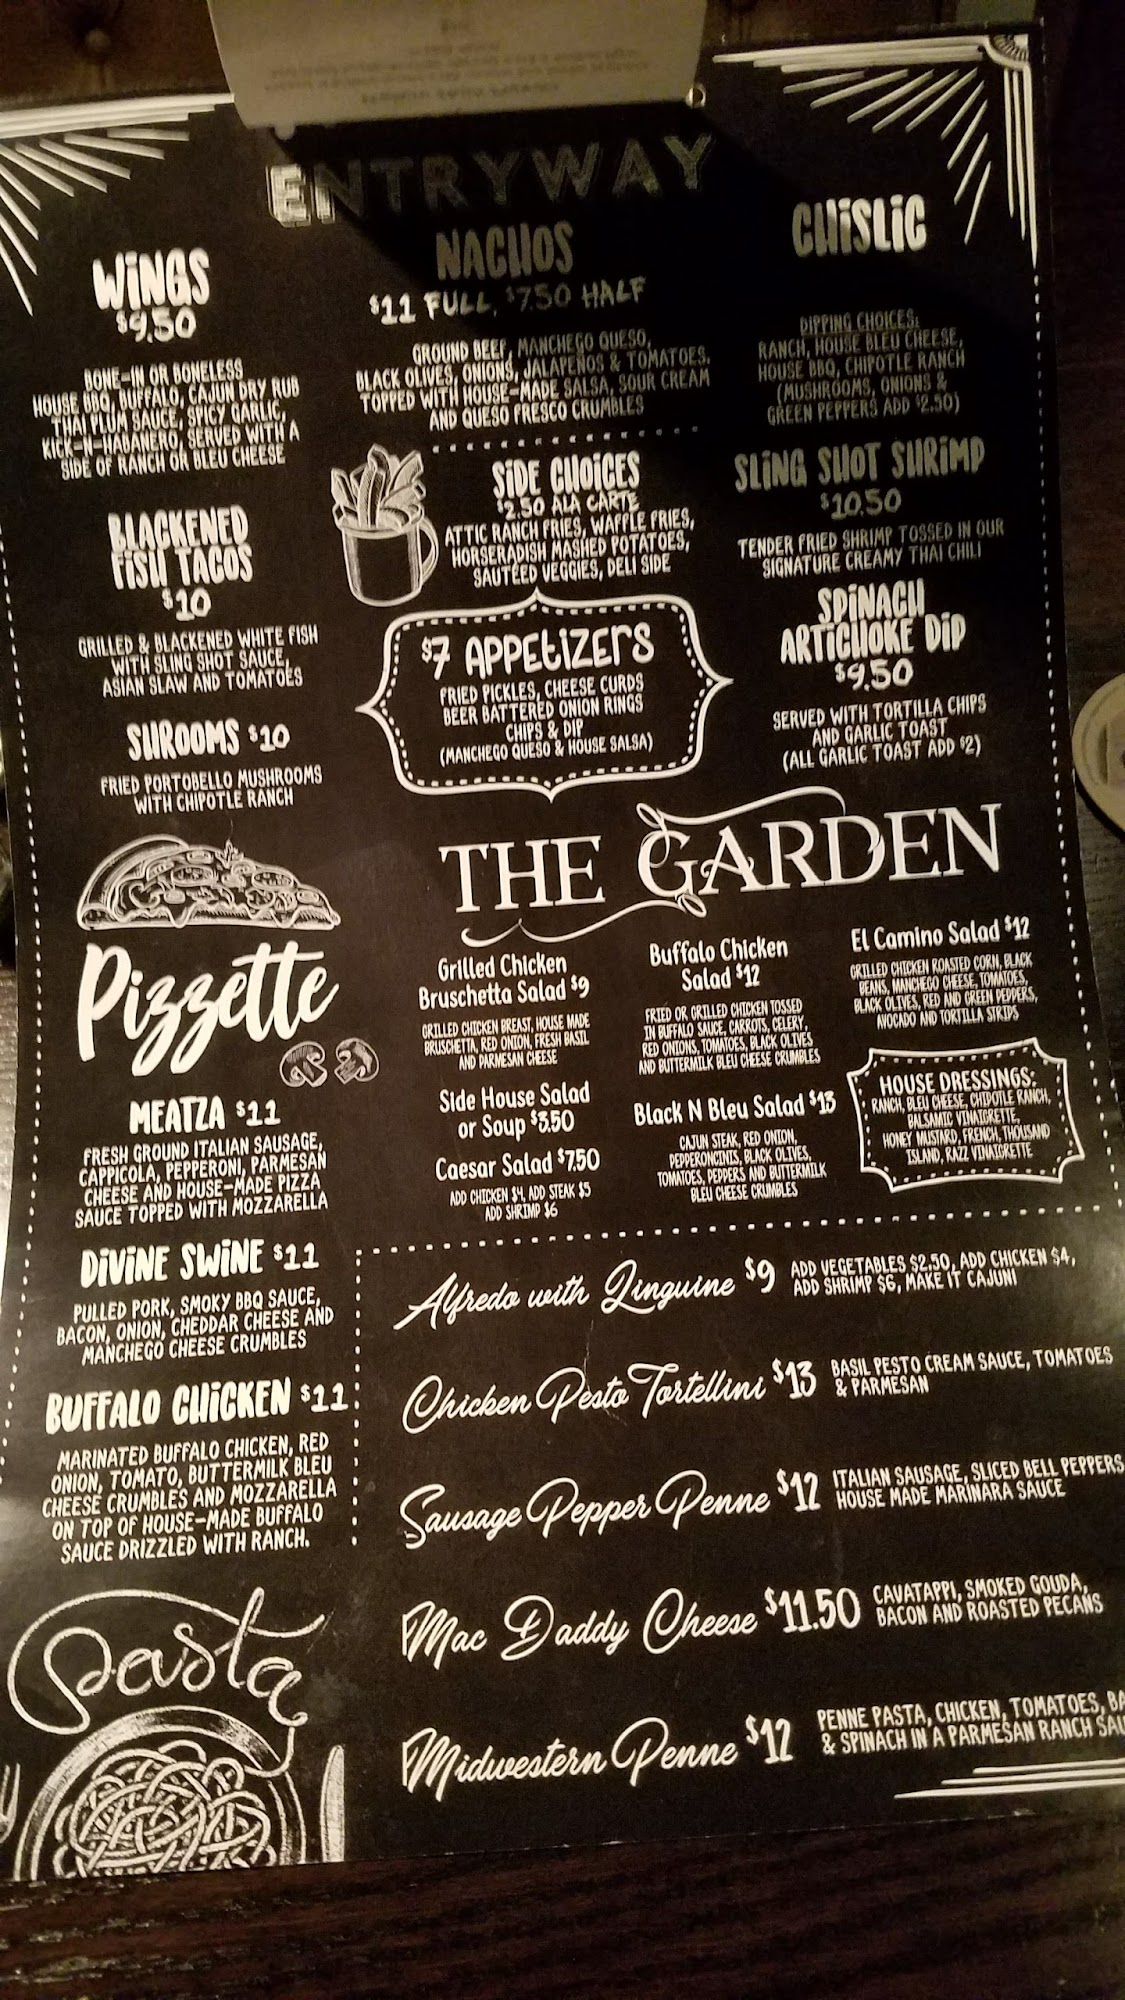 ENTRYWAY
WINGS
$9.50
BONE-IN OR BONELESS
HOUSE BBQ, BUFFALO, CAJUN DRY RUB
THAI PLUM SAUCE, SPICY GARLIC,
KICK-N-HABANERO, SERVED WITH A
SIDE OF RANCH OR BLEU CHEESE
BLACKENED
FISH TACOS
$10
GRILLED & BLACKENED WHITE FISH
WITH SLING SHOT SAUCE,
ASIAN SLAW AND TOMATOES
SHROOMS $10
FRIED PORTOBELLO MUSHROOMS
WITH CHIPOTLE RANCH
NACHOS
$11 FULL, $7.50 HALF
GROUND BEEF, MANCHEGO QUESO,
BLACK OLIVES, ONIONS, JALAPEÑOS & TOMATOES.
TOPPED WITH HOUSE-MADE SALSA, SOUR CREAM
AND QUESO FRESCO CRUMBLES
SIDE CHOICES
$2.50 ALA CARTE
ATTIC RANCH FRIES, WAFFLE FRIES,
HORSERADISH MASHED POTATOES,
SAUTÉED VEGGIES, DELI SIDE
$7 APPETIZERS
FRIED PICKLES, CHEESE CURDS
BEER BATTERED ONION RINGS
CHIPS & DIP
(MANCHEGO QUESO & HOUSE SALSA)
CHISLIC
DIPPING CHOICES:
RANCH, HOUSE BLEU CHEESE,
HOUSE BBQ, CHIPOTLE RANCH
(MUSHROOMS, ONIONS &
GREEN PEPPERS ADD $2.50)
SLING SHOT SHRIMP
$10.50
TENDER FRIED SHRIMP TOSSED IN OUR
SIGNATURE CREAMY THAI CHILI
SPINACH
ARTICHOKE DIP
$9.50
SERVED WITH TORTILLA CHIPS
AND GARLIC TOAST
(ALL GARLIC TOAST ADD $2)
Pizzette
MEATZA $11
FRESH GROUND ITALIAN SAUSAGE,
CAPPICOLA, PEPPERONI, PARMESAN
CHEESE AND HOUSE-MADE PIZZA
SAUCE TOPPED WITH MOZZARELLA
DIVINE SWINE $11
PULLED PORK, SMOKY BBQ SAUCE,
BACON, ONION, CHEDDAR CHEESE AND
MANCHEGO CHEESE CRUMBLES
BUFFALO CHICKEN $11
MARINATED BUFFALO CHICKEN, RED
ONION, TOMATO, BUTTERMILK BLEU
CHEESE CRUMBLES AND MOZZARELLA
ON TOP OF HOUSE-MADE BUFFALO
SAUCE DRIZZLED WITH RANCH.
THE GARDEN
Grilled Chicken
Bruschetta Salad $9
GRILLED CHICKEN BREAST, HOUSE MADE
BRUSCHETTA, RED ONION, FRESH BASIL
AND PARMESAN CHEESE
Side House Salad
or Soup $3.50
Caesar Salad $7.50
ADD CHICKEN $4, ADD STEAK $5
ADD SHRIMP $6
Buffalo Chicken
Salad $12
FRIED OR GRILLED CHICKEN TOSSED
IN BUFFALO SAUCE, CARROTS, CELERY,
RED ONIONS, TOMATOES, BLACK OLIVES
AND BUTTERMILK BLEU CHEESE CRUMBLES
Black N Bleu Salad $13
CAJUN STEAK, RED ONION,
PEPPERONCINIS, BLACK OLIVES,
TOMATOES, PEPPERS AND BUTTERMILK
BLEU CHEESE CRUMBLES
El Camino Salad $12
GRILLED CHICKEN ROASTED CORN, BLACK
BEANS, MANCHEGO CHEESE, TOMATOES,
BLACK OLIVES, RED AND GREEN PEPPERS,
AVOCADO AND TORTILLA STRIPS
HOUSE DRESSINGS:
RANCH, BLEU CHEESE, CHIPOTLE RANCH,
BALSAMIC VINAIGRETTE,
HONEY MUSTARD, FRENCH, THOUSAND
ISLAND, RAZZ VINAIGRETTE
Pasta
Alfredo with Linguine $9 ADD VEGETABLES $2.50, ADD CHICKEN $4,
ADD SHRIMP $6, MAKE IT CAJUN!
Chicken Pesto Tortellini $13 BASIL PESTO CREAM SAUCE, TOMATOES
& PARMESAN
Sausage Pepper Penne $12 ITALIAN SAUSAGE, SLICED BELL PEPPERS
HOUSE MADE MARINARA SAUCE
Mac Daddy Cheese $11.50 CAVATAPPI, SMOKED GOUDA,
BACON AND ROASTED PECANS
Midwestern Penne $12 PENNE PASTA, CHICKEN, TOMATOES, BA
& SPINACH IN A PARMESAN RANCH SAU